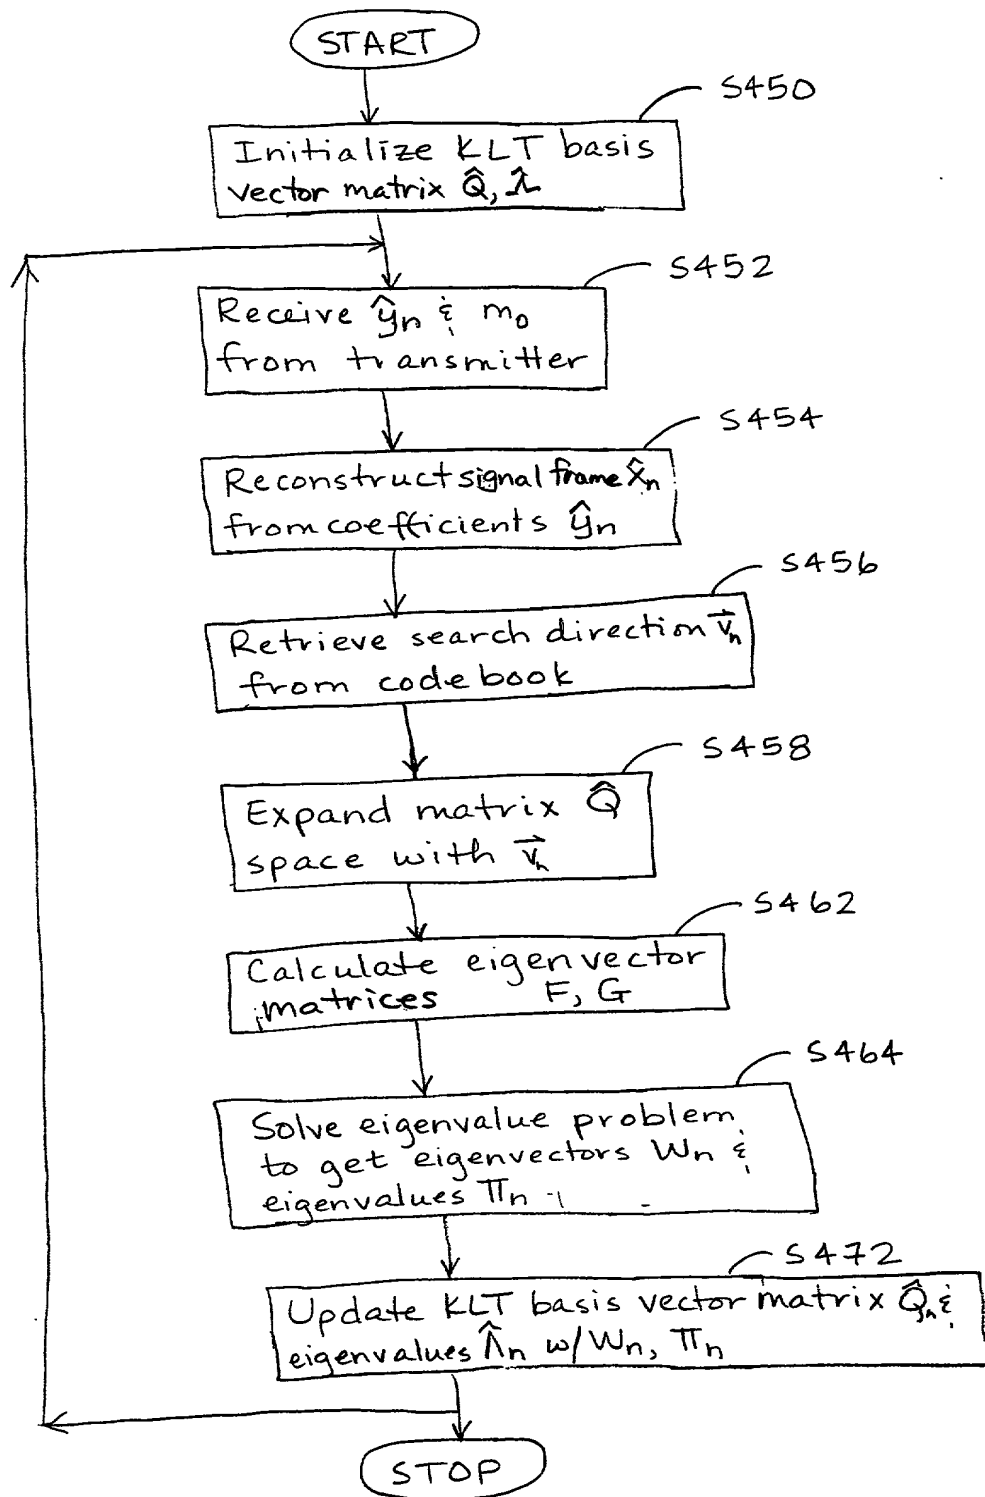 START
S450
Initialize KLT basis
vector matrix Q̂, λ̂
S452
Receive ŷn & m0
from transmitter
S454
Reconstruct signal frame x̂n
from coefficients ŷn
S456
Retrieve search direction v⃗n
from codebook
S458
Expand matrix Q̂
space with v⃗n
S462
Calculate eigenvector
matrices F, G
S464
Solve eigenvalue problem
to get eigenvectors Wn &
eigenvalues Πn
S472
Update KLT basis vector matrix Q̂n &
eigenvalues Λ̂n w/ Wn, Πn
STOP